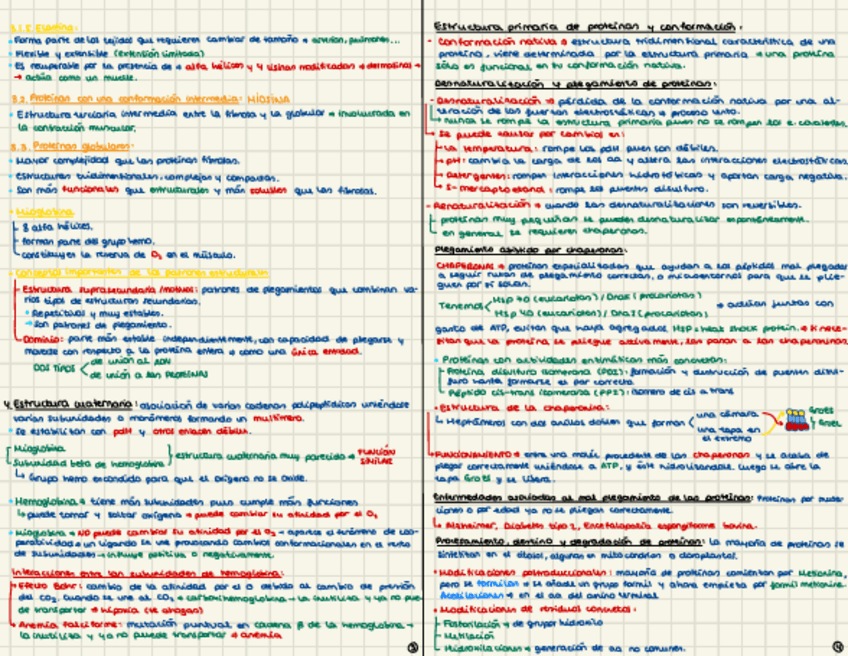 3.1.5. Elastina:
• Forma parte de los tejidos que requieren cambiar de tamaño → arterias, pulmones...
• Flexible y extensible (extensión limitada)
• Es recuperable por la presencia de α hélices y 4 lisinas modificadas → desmosina →
→ actúa como un muelle.
3.2. Proteínas con una conformación intermedia: MIOSINA
• Estructura terciaria intermedia entre la fibrosa y la globular → involucrada en
la contracción muscular.
3.3. Proteínas globulares:
• Mayor complejidad que las proteínas fibrosas.
• Estructuras tridimensionales, complejas y compactas.
• Son más funcionales que estructurales y más solubles que las fibrosas.
• Mioglobina
8 alfa hélices.
forman parte del grupo hemo.
constituyen la reserva de O₂ en el músculo.
• Conceptos importantes de los patrones estructurales
Estructura suprasecundaria/motivos: patrones de plegamientos que combinan va-
rios tipos de estructuras secundarias.
• Repetitivos y muy estables.
→ Son patrones de plegamiento.
Dominio: parte más estable independientemente, con capacidad de plegarse y
moverse con respecto a la proteína entera → como una única entidad.
DOS TIPOS
de unión al ADN
de unión a las PROTEÍNAS
4. Estructura cuaternaria: asociación de varias cadenas polipeptídicas uniéndose
varias subunidades o monómeros formando un multímero.
• Se estabilizan con pdH y otros enlaces débiles.
Mioglobina
Subunidad beta de hemoglobina
estructura cuaternaria muy parecida → FUNCIÓN SIMILAR
↳ Grupo hemo escondido para que el oxígeno no se oxide.
• Hemoglobina → tiene más subunidades pues cumple más funciones
↳ puede tomar y soltar oxígeno → puede cambiar su afinidad por el O₂
• Mioglobina → NO puede cambiar su afinidad por el O₂ → aparece el fenómeno de coo-
peratividad → un ligando se une provocando cambios conformacionales en el resto
de subunidades → influye positiva o negativamente.
Interacciones entre las subunidades de hemoglobina:
• Efecto Bohr: cambio de la afinidad por el O debido al cambio de presión
del CO₂. Cuando se une al CO₂ → carboxihemoglobina → la inutiliza y ya no pue-
de transportar → hipoxia (te ahogas)
• Anemia falciforme: mutación puntual en cadena β de la hemoglobina →
la inutiliza y ya no puede transportar → anemia
③
Estructura primaria de proteínas y conformación:
- Conformación nativa → estructura tridimensional característica de una
proteína, viene determinada por la estructura primaria → una proteína
sólo es funcional en su conformación nativa.
Desnaturalización y plegamiento de proteínas:
- Desnaturalización → pérdida de la conformación nativa por una al-
teración de las fuerzas electrostáticas → proceso lento.
↳ nunca se rompe la estructura primaria pues no se rompen los e. covalentes.
Se puede causar por cambios en:
La temperatura: rompe los pdH pues son débiles.
pH: cambia la carga de los aa y altera las interacciones electrostáticas.
Detergentes: rompen interacciones hidrofóbicas y aportan carga negativa.
β-mercaptoetanol: rompe los puentes disulfuro.
- Renaturalización → cuando las desnaturalizaciones son reversibles.
proteínas muy pequeñas se pueden desnaturalizar espontáneamente.
en general se requieren chaperonas.
Plegamiento asistido por chaperonas:
CHAPERONAS → proteínas especializadas que ayudan a los péptidos mal plegados
a seguir rutas de plegamiento correctas, o microentornos para que se plie-
guen por sí solas.
Tenemos
Hsp 70 (eucariotas) / DnaK (procariotas)
Hsp 40 (eucariotas) / DnaJ (procariotas)
→ actúan juntas con
gasto de ATP, evitan que haya agregados. HSP = heat shock protein.
que la proteína se pliegue activamente, las pasan a las chaperoninas
• Proteínas con actividades enzimáticas más concretas:
Proteína disulfuro isomerasa (PDI): formación y destrucción de puentes disul-
furo hasta formarse el par correcto
Péptido cis-trans isomerasa (PPI): isómero de cis a trans
• Estructura de la chaperonina:
↳ Heptámeros con dos anillos dobles que forman
una cámara
una tapa en
el extremo
GroEL
GroES
FUNCIONAMIENTO → entra una maxi procedente de las chaperonas y se acaba de
plegar correctamente uniéndose a ATP, y éste hidrolizándose, luego se abre la
tapa GroES y se libera.
Enfermedades asociadas al mal plegamiento de las proteínas: Proteínas por muta-
ciones o por edad ya no se pliegan correctamente.
↳ Alzheimer, Diabetes tipo 2, Encefalopatía espongiforme bovina.
Procesamiento, destino y degradación de proteínas: la mayoría de proteínas se
sintetizan en el citosol, algunas en mitocondrias o cloroplastos.
• Modificaciones postraduccionales: mayoría de proteínas comienzan por Metionina,
pero se formilan → se añade un grupo formil y ahora empieza por formil metionina.
Acetilaciones → en el aa del amino terminal
• Modificaciones de residuos concretos:
Fosforilación → de grupos hidroxilo
Metilación
Hidroxilaciones → generación de aa no comunes.
④